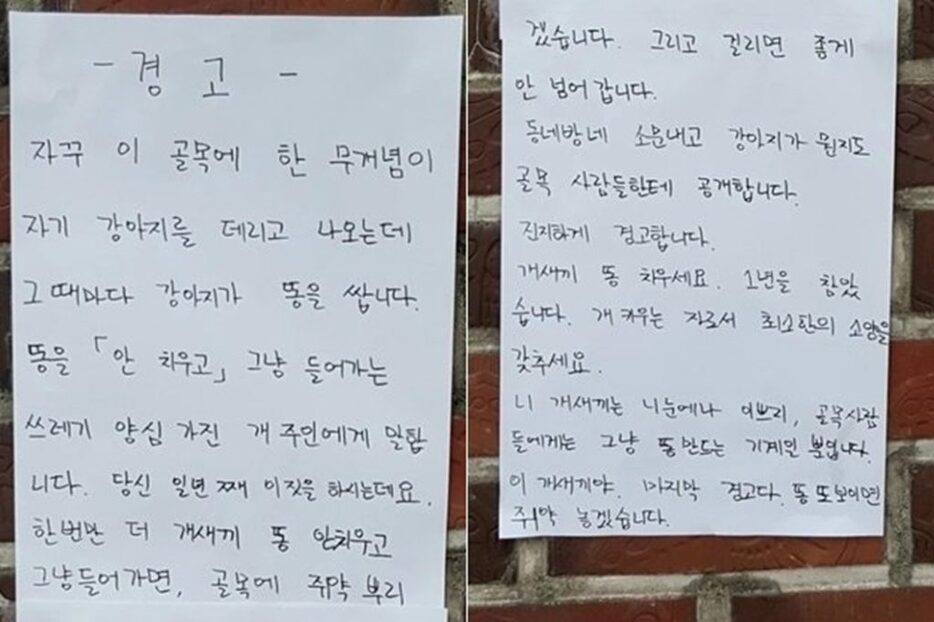 - 경 고 -
자꾸 이 골목에 한 무개념이
자기 강아지를 데리고 나오는데
그때마다 강아지가 똥을 쌉니다.
똥을 「안 치우고」 그냥 들어가는
쓰레기 양심 가진 개주인에게 말합
니다. 당신 일년째 이짓을 하시는데요.
한번만 더 개새끼 똥 안치우고
그냥들어가면, 골목에 쥐약 뿌리
겠습니다. 그리고 걸리면 좋게
안 넘어갑니다.
동네방네 소문내고 강아지가 뭔지도
골목 사람들한테 공개합니다.
진지하게 경고합니다.
개새끼 똥 치우세요. 1년을 참았
습니다. 개키우는 자로서 최소한의 소양을
갖추세요.
니 개새끼는 니눈에나 이쁘리, 골목사람
들에게는 그냥 똥만드는 기계일 뿐입니다.
이 개새끼야. 마지막 경고다. 똥 또보이면
쥐약 놓겠습니다.